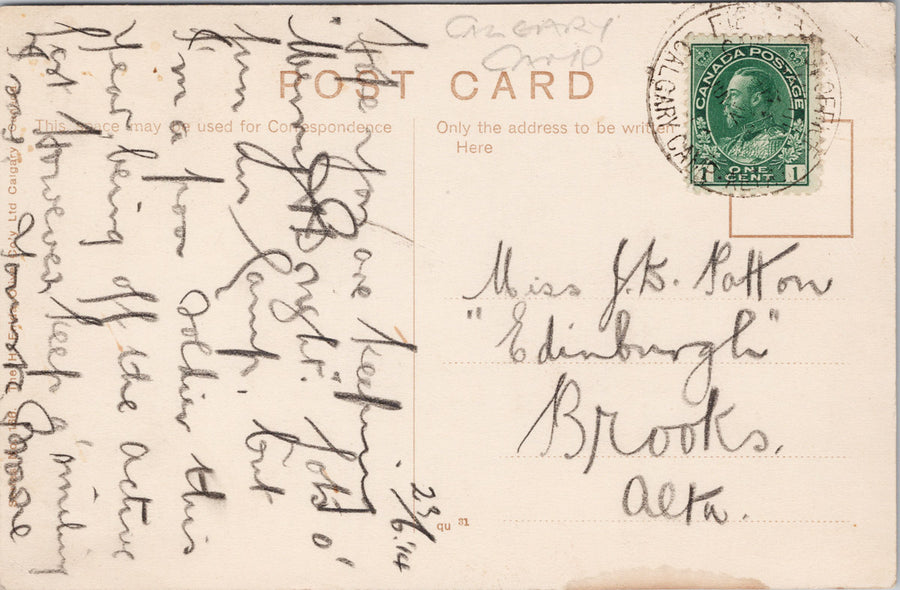 CALGARY
CAMP
POST CARD
This space may be used for Correspondence
Only the address to be written
Here
CANADA POSTAGE
ONE
CENT
1 1
CALGARY CAMP
23/6.'14
Hope you are keeping
"Merry & Bright". Lots o'
fun in Camp, but
I'm a poor soldier this
year being off the active
list. However keep a' smiling
Yours
Miss J.D. Patton
"Edinburgh"
Brooks.
Alta.
qu 31
Ltd Calgary